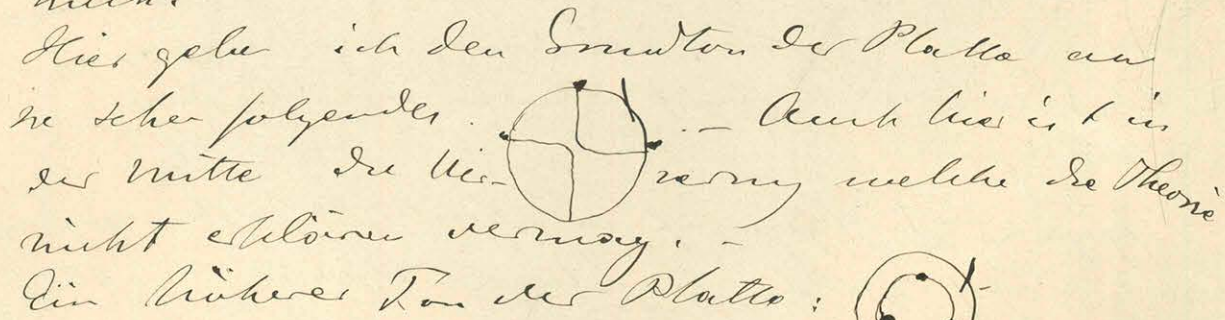 Hier gebe ich den Grundton der Platte an
sie sehen folgendes. – Auch hier ist in
der Mitte die Ver-zerrung welche die Theorie
nicht erklären vermag. –
Ein höherer Ton der Platte: